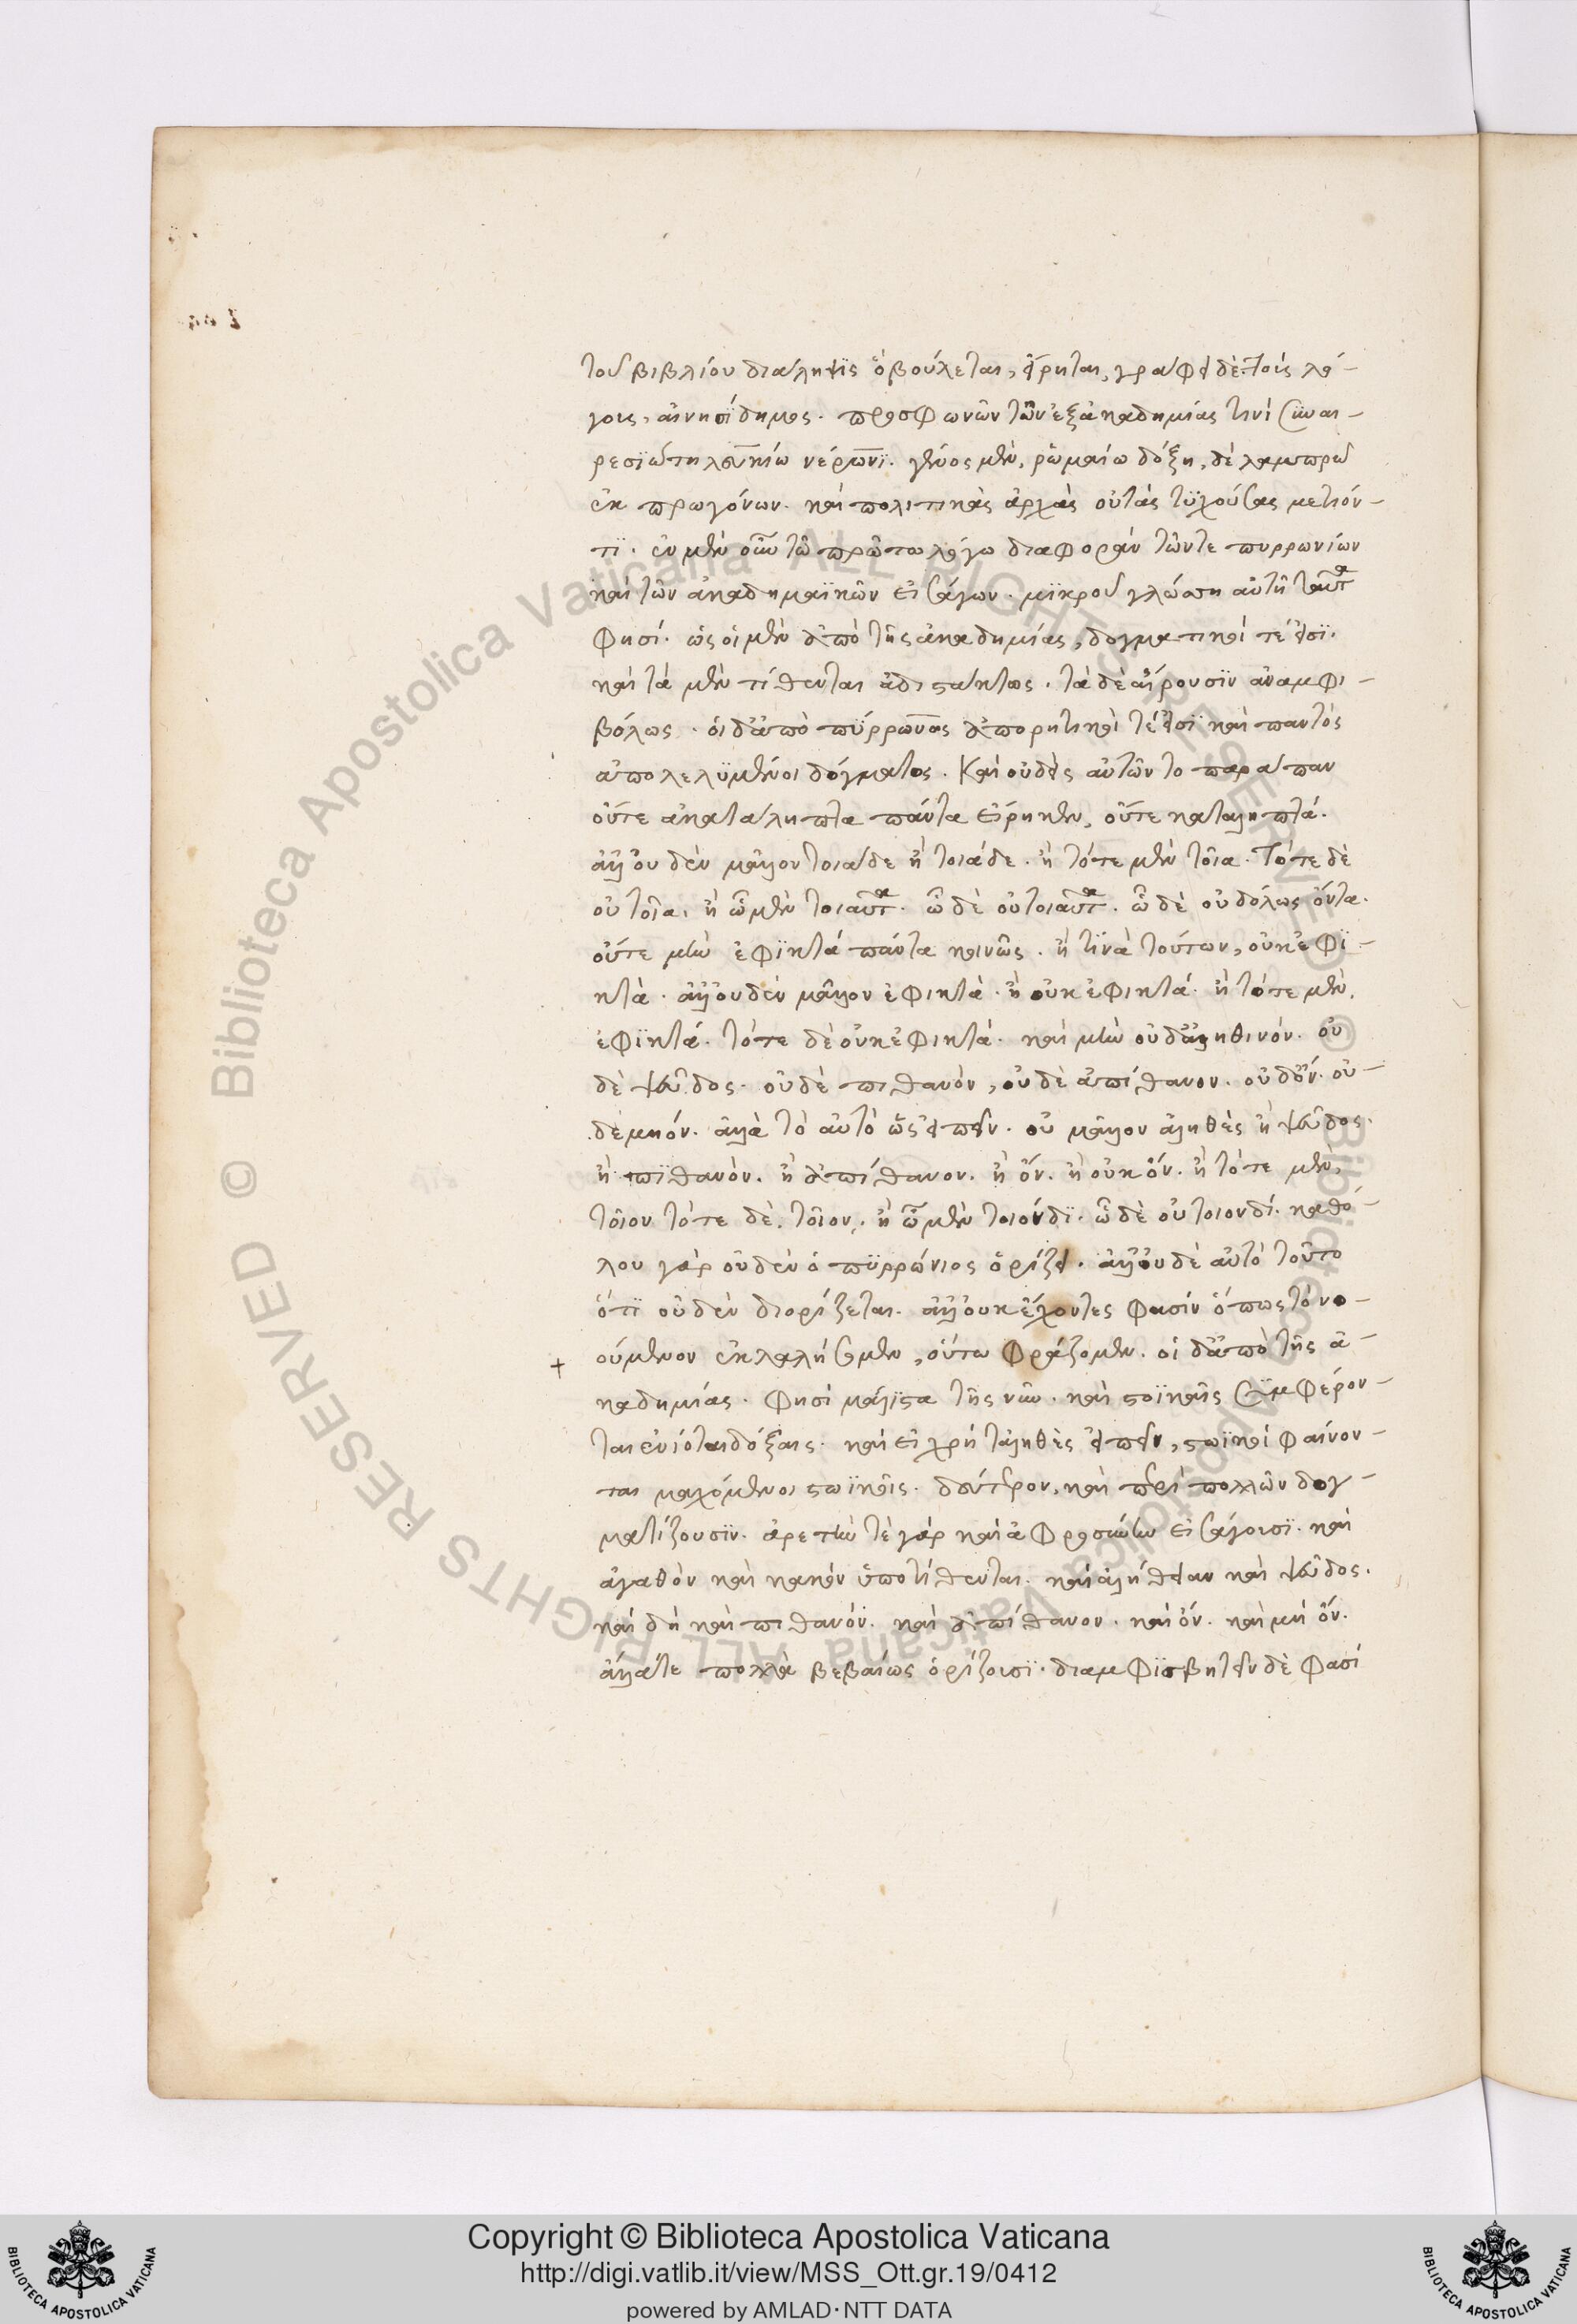 τοῦ βιβλίου διάληψϊς ὃ βούλεται, εἴρηται, γράφει δὲ τοὺς λό-
γους, αἰνησίδημος. προσφωνῶν τῶν ἐξ ἀκαδημίας τινὶ συναι-
ρεσϊώτη λουκίω νέρωνϊ. γένος μὲν, ῥωμαίω δόξη, δὲ λαμπρῶ
ἐκ προγόνων. καὶ πολιτικὰς ἀρχὰς οὐ τὰς τϋχούσας μετιόν-
τϊ. ἐν μὲν οὖν τῶ πρώτω λόγω διαφορὰν τῶν τε πυρρωνίων
καὶ τῶν ἀκαδημαϊκῶν εἰσάγων. μϊκροῦ γλώσση αὐτῆ ταῦτα
φησί. ὡς οἱ μὲν ἀπὸ τῆς ἀκαδημίας, δογματικοί τέ εἰσϊ.
καὶ τὰ μὲν τίθενται ἀδιστάκτως. τὰ δὲ αἴρουσϊν ἀναμφι-
βόλως. οἱ δ' ἀπὸ πύρρωνος ἀπορητικοὶ τέ εἰσϊ καὶ παντὸς
ἀπολελϋμένοι δόγματος. καὶ οὐδεὶς αὐτῶν το παράπαν
οὔτε ἀκατάληπτα πάντα εἴρηκεν, οὔτε καταληπτά.
ἀλλ' οὐδὲν μᾶλλον τοιάδε ἢ τοιάδε. ἢ τότε μὲν τοῖα. τότε δὲ
οὐ τοῖα. ἢ ὧ μὲν τοιαῦτα. ὧ δὲ οὐ τοιαῦτα. ὧ δὲ οὐδ' ὅλως ὄντα.
οὔτε μὴν ἐφϊκτὰ πάντα κοινῶς. ἢ τϊνὰ τούτων, οὐκ ἐφϊ-
κτὰ. ἀλλ' οὐδὲν μᾶλλον ἐφικτὰ. ἢ οὐκ ἐφικτά. ἢ τότε μὲν,
ἐφϊκτά. τότε δὲ οὐκ ἐφικτά. καὶ μὴν οὐδ' ἀληθινόν. οὐ
δὲ ψεῦδος. οὐδὲ πιθανὸν, οὐδὲ ἀπίθανον. οὐδ' ὄν. οὐ-
δὲ μὴ ὄν. ἀλλὰ τὸ αὐτὸ ὡς εἰπεῖν. οὐ μᾶλλον ἀληθὲς ἢ ψεῦδος.
ἢ πϊθανὸν. ἢ ἀπίθανον. ἢ ὄν. ἢ οὐκ ὄν. ἢ τότε μὲν,
τοῖον τότε δὲ. τοῖον. ἢ ὧ μὲν τοιόνδϊ. ὧ δὲ οὐ τοιονδί. καθό-
λου γὰρ οὐδὲν ὁ πϋρρώνιος ὁρίζει. ἀλλ' οὐδὲ αὐτὸ τοῦτο
ὅτϊ οὐδὲν διορίζεται. ἀλλ' οὐκ ἔχοντες φασὶν ὅπως τὸ νο-
ούμενον ἐκλαλήσωμεν, οὕτω φράζομεν. οἱ δ' ἀπὸ τῆς ἀ-
καδημίας. φησὶ μάλϊστα τῆς νῦν. καὶ στοϊκαῖς συμφέρον-
ται ἐνίοτε δόξαις. καὶ εἰ χρὴ τἀληθὲς εἰπεῖν, στωϊκοὶ φαίνον-
ται μαχόμενοι στωϊκοῖς. δεύτερον, καὶ περὶ πολλῶν δογ-
ματίζουσϊν. ἀρετήν τὲ γὰρ καὶ ἀφροσύνην εἰσάγουσϊ. καὶ
ἀγαθὸν καὶ κακὸν ὑποτίθενται. καὶ ἀλήθειαν καὶ ψεῦδος.
καὶ δὴ καὶ πιθανόν. καὶ ἀπίθανον. καὶ ὄν. καὶ μὴ ὄν.
ἄλλά τε πολλὰ βεβαίως ὁρίζουσϊ. διαμφϊσβητεῖν δὲ φασί
Copyright © Biblioteca Apostolica Vaticana
http://digi.vatlib.it/view/MSS_Ott.gr.19/0412
powered by AMLAD·NTT DATA